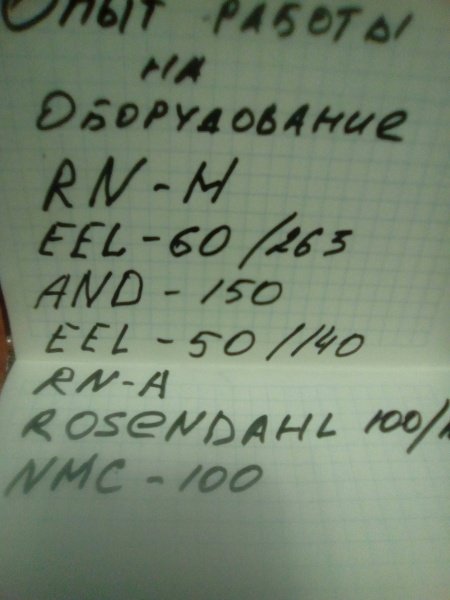 Опыт работы
на
Оборудование
RN-M
EEL-60/263
AND-150
EEL-50/140
RN-A
ROSENDAHL
NMC-100